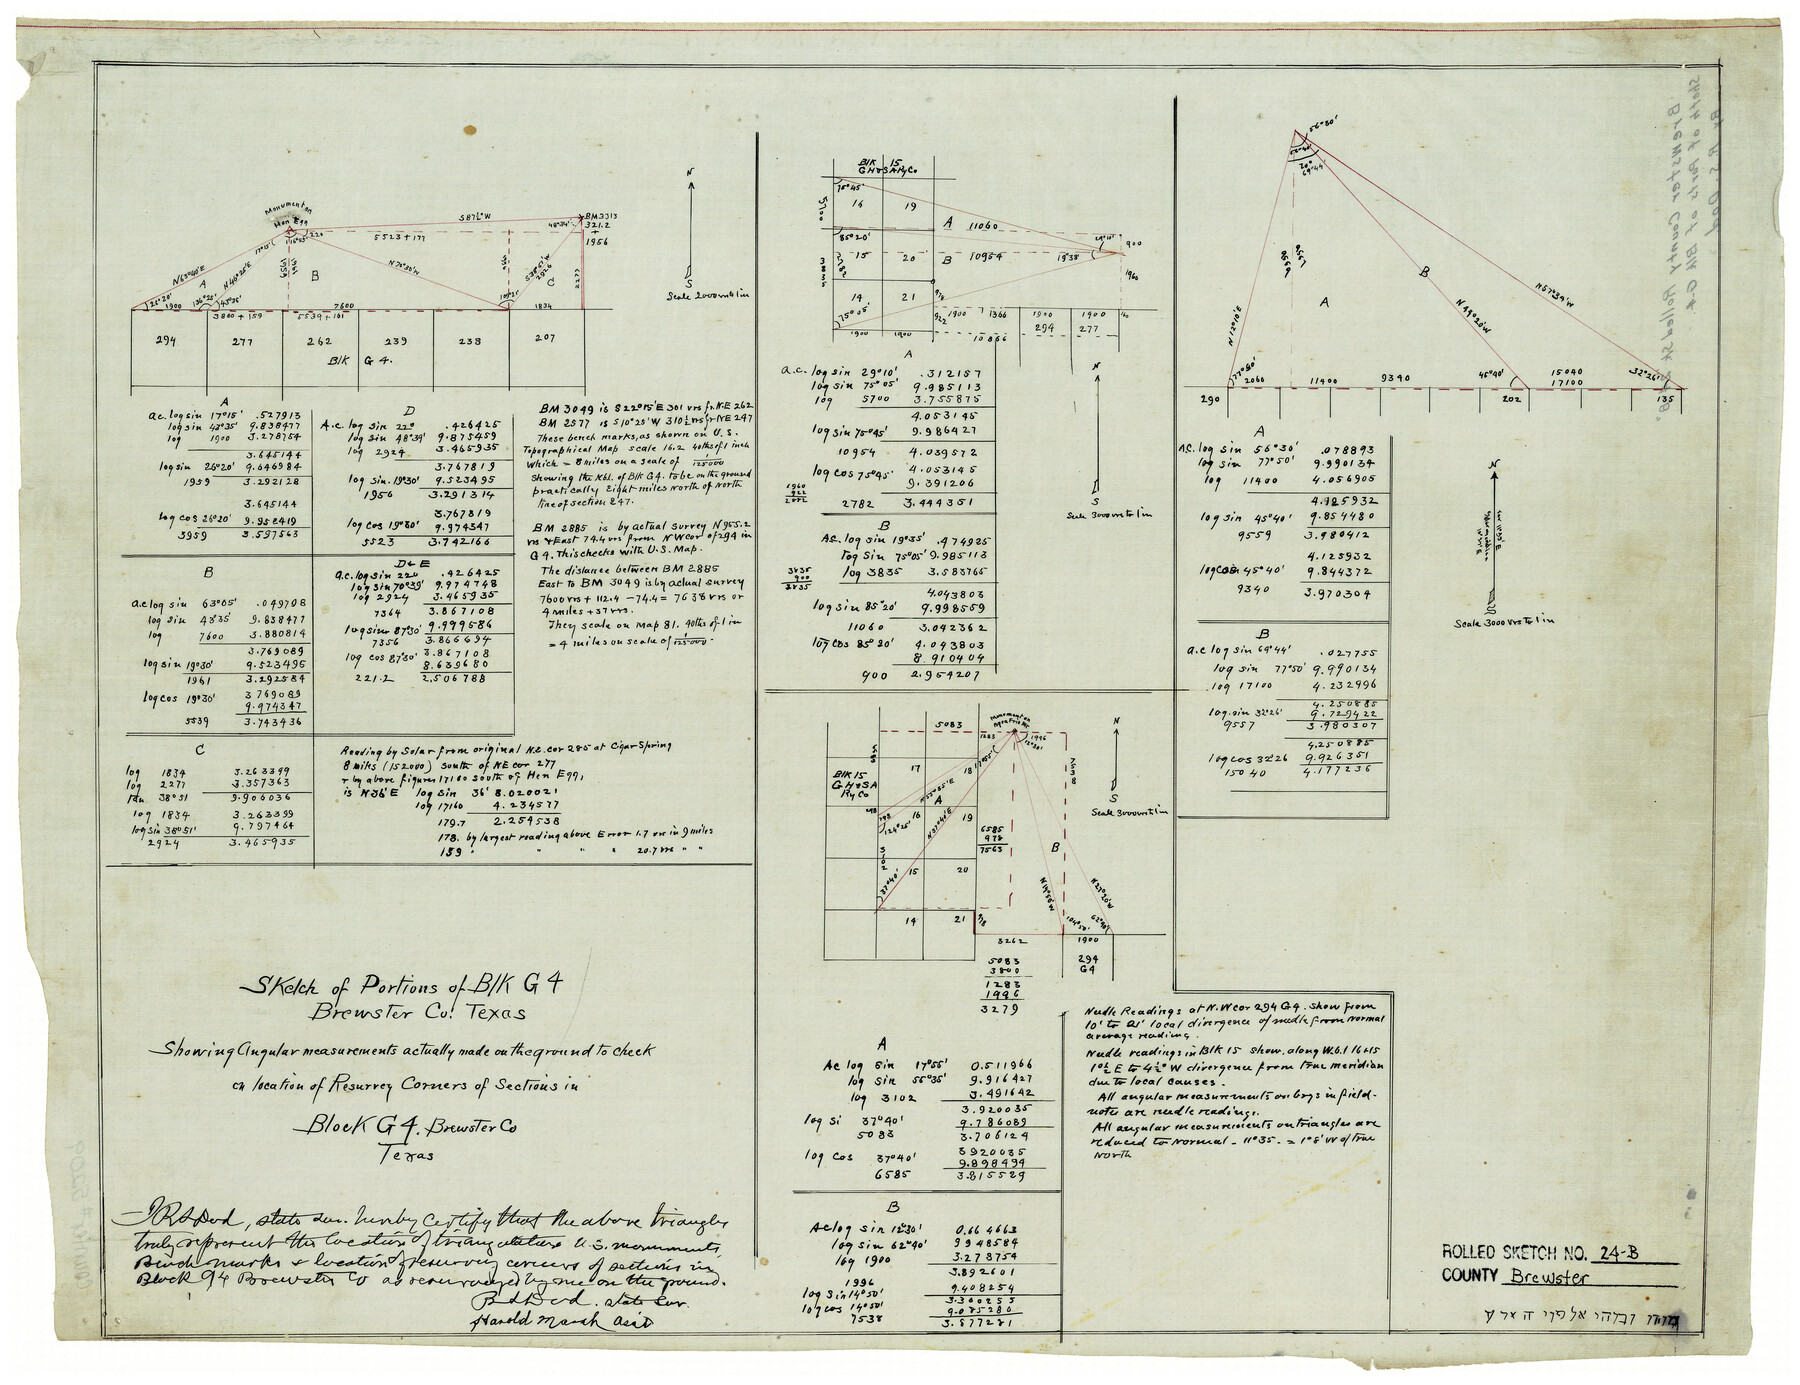 Monument on
Hen Egg
S 87½° W
5523 + 177
BM 3313
321.2
1956
48°34'
N 63°40' E
17°15'
N 46°25' E
N 70°30' W
A
B
C
26°20'
1900
136°25'
43°35'
7600
1834
2277
3800 + 159
5539 + 161
294
277
262
239
238
207
Blk G 4.
N
S
Scale 2000 vrs to 1 in
A
a.c. log sin 17°15' .527913
log sin 43°35' 9.838477
log 1900 3.278754
3.645144
log sin 26°20' 9.646984
1959 3.292128
3.645144
log cos 26°20' 9.952419
3959 3.597563
B
a.c log sin 63°05' .049798
log sin 43°35' 9.838477
log 7600 3.880814
3.769089
log sin 19°30' 9.523495
1961 3.292584
log cos 19°30' 3 769089
9.974347
5539 3.743436
C
log 1834 3.263399
log 2277 3.357363
tan 38°51 9.906036
log 1834 3.263399
log sin 38°51' 9.797464
2924 3.465935
D
A.c log sin 22° .426425
log sin 48°39' 9.875459
log 2924 3.465935
3.767819
log sin 19°30' 9.523495
1956 3.291314
3.767819
log cos 19°30' 9.974347
5523 3.742166
D & E
a.c. log sin 22° .426425
log sin 70°39' 9.974748
log 2924 3.465935
7364 3.867108
log sin 87°30' 9.999586
7356 3.866694
log cos 87°30' 3.867108
8.639680
221.2 2.506788
BM 3049 is S 22°15' E 301 vrs fr. N.E 262
BM 2577 is S 10°25' W 310½ vrs fr NE 247
These bench marks, as shown on U.S.
Topographical Map scale 16.2 40ths of 1 inch
which = 8 miles on a scale of 1/125000
Showing the Nbl. of Blk G4. to be on the ground
practically Eight miles North of North
line of section 247.
BM 2885 is by actual survey N 955.2
vrs & East 74.4 vrs from N W cor of 294 in
G 4. This checks with U.S. Map.
The distance between BM 2885
East to BM 3049 is by actual survey
7600 vrs + 112.4 - 74.4 = 7638 vrs or
4 miles + 37 vrs.
They scale on map 81. 40ths of 1 in
= 4 miles on scale of 1/125000.
Reading by Solar from original N.E. cor 285 at Cigar Spring
8 miles (152000) South of NE cor 277
& by above figures 17160 South of Hen Egg,
is N 36' E log sin 36' 8.020021
log 17160 4.234577
179.7 2.254538
178. by largest reading above Error 1.7 vrs in 9 miles
159 " " " " 20.7 vrs " "
Sketch of Portions of Blk G 4
Brewster Co. Texas
Showing Angular measurements actually made on the ground to check
on location of Resurvey Corners of Sections in
Block G 4. Brewster Co
Texas
I R S Dod, state sur. hereby certify that the above triangles
truly represent the location of triangulation U.S. monuments,
Bench marks & location of resurvey corners of sections in
Block G4 Brewster Co as resurveyed by me on the ground.
R S Dod. state sur.
Harold Marsh Asst
Blk 15
GH&SA Ry Co
75°45'
5700
16
19
A
11060
85°20'
3835
15
20
B
10954
29°10'
19°35'
900
1960
14
21
75°05'
922
1900
1366
1900
1900
294
277
1900
1900
10866
A
a.c. log sin 29°10' .312157
log sin 75°05' 9.985113
log 5700 3.755875
4.053145
log sin 75°45' 9.986427
10954 4.039572
log cos 75°45' 4.053145
9.391206
2782 3.444351
1960
922
2882
B
Ac. log sin 19°35' .474925
log sin 75°05' 9.985113
log 3835 3.583765
4.043803
log sin 85°20' 9.998559
11060 3.042362
log cos 85°20' 4.043803
8.910404
900 2.954207
N
S
Scale 3000 vrs to 1 in
5083
1283
1996
7538
Blk 15
GH&SA
Ry Co
17
18
N 55°35' E
A
124°25'
16
N 37°40' E
19
3102
6585
978
7563
B
37°40'
15
20
N 14°50' W
N 27°20' W
14
21
978
104°50'
62°40'
3262
1900
294
G4
5083
3800
1283
1996
3279
N
S
Scale 3000 vrs to 1 in
A
Ac log sin 17°55' 0.511966
log sin 55°35' 9.916427
log 3102 3.491642
3.920035
log si 37°40' 9.786089
5083 3.706124
log cos 37°40' 3920035
9.898494
6585 3.815529
B
Ac log sin 12°30' 0.664663
log sin 62°40' 9948584
log 1900 3.278754
3.892601
1996
log sin 14°50' 9.408254
3.300255
log cos 14°50' 9.985280
7538 3.877281
Needle Readings at N.W cor 294 G4. show from
10' to 21' local divergence of needle from normal
average reading.
Needle readings in Blk 15 show, along W.b.l 16 & 15
1°½ E to 4½° W divergence from true meridian
due to local causes.
All angular measurements on brgs in field-
notes are needle readings.
All angular measurements on triangles are
reduced to Normal - 11°35. = 1°5' W of true
North
56°30'
69°44'
9559
9557
N 12°10' E
A
B
N 44°20' W
N 57°34' W
77°50'
2060
11400
9340
45°40'
15040
17100
32°26'
290
202
135
A
Ac. log sin 56°30' .078893
log sin 77°50' 9.990134
log 11400 4.056905
4.125932
log sin 45°40' 9.854480
9559 3.980412
4.125932
log cos 45°40' 9.844372
9340 3.970304
B
a.c log sin 69°44' .027755
log sin 77°50' 9.990134
log 17100 4.232996
4.250885
log. sin 32°26' 9.729422
9557 3.980307
4.250885
log cos 32°26 9.926351
150 40 4.177236
N
S
Scale 3000 vrs to 1 in
ROLLED SKETCH NO. 24-B
COUNTY Brewster